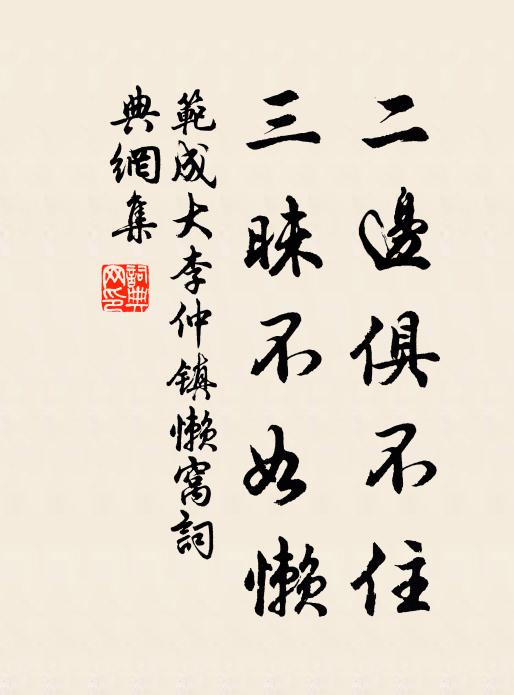 二邊俱不住
三昧不如懶
範成大李仲鎮懶窩詞
典網集
詞典
网印